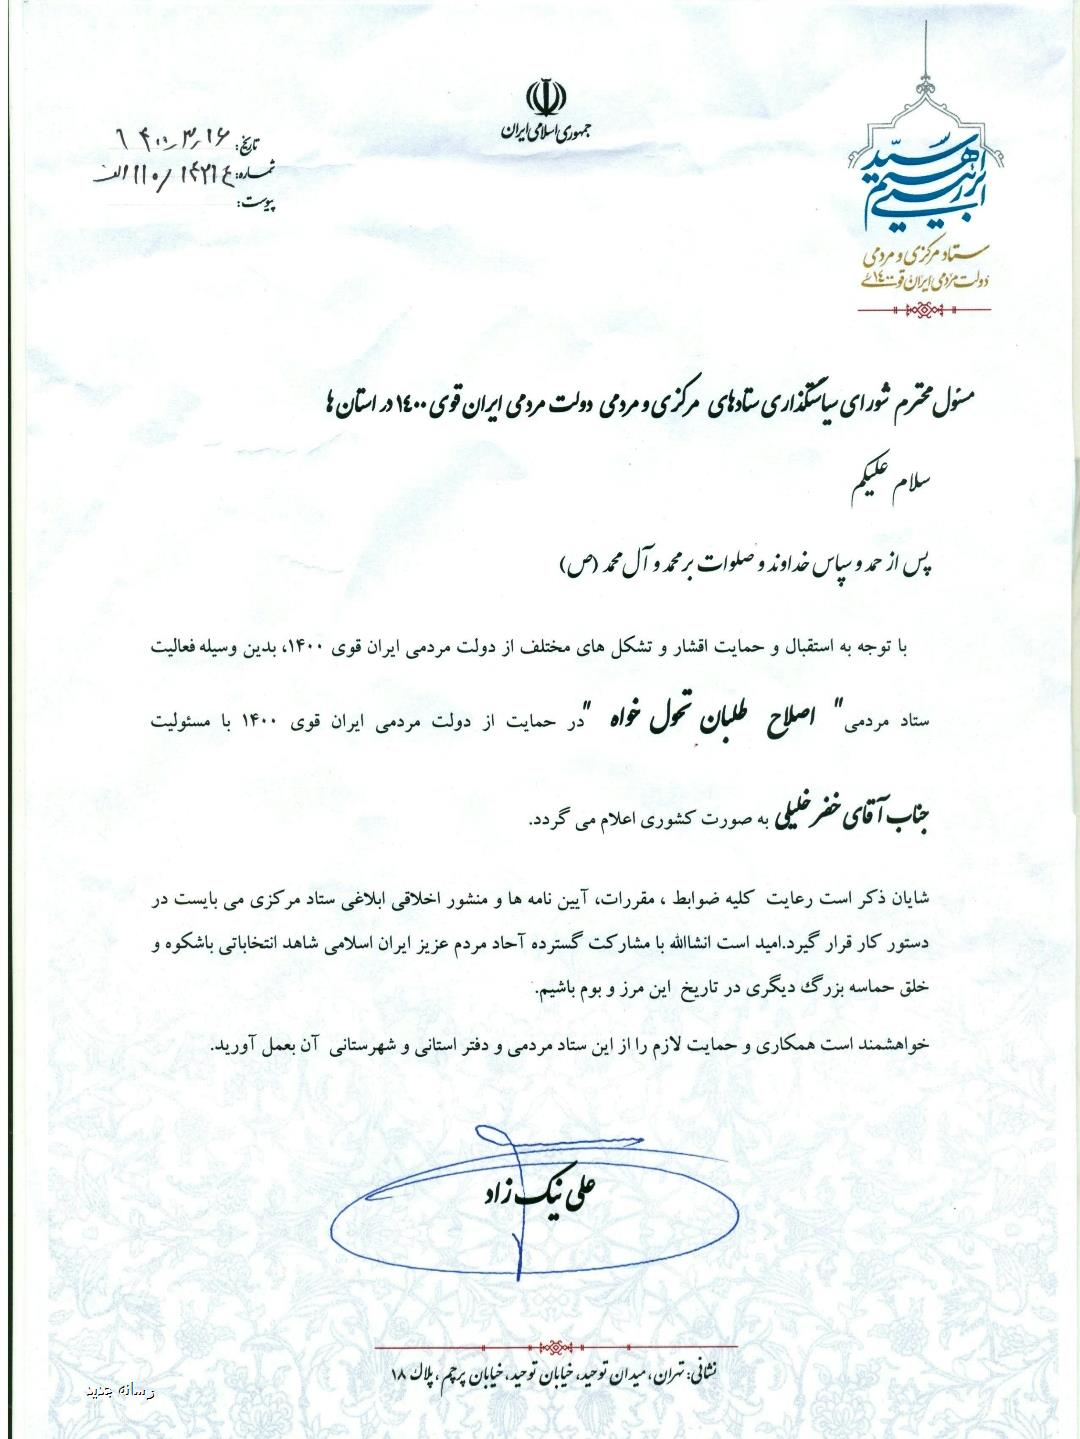 جمهوری اسلامی ایران
تاریخ: ۱۴۰۰٫۳٫۱۶
شماره: ۱۱۰/۱۴۲۱۶/الف
پیوست:
سید
ابراهیم
رئیسی
ستاد مرکزی و مردمی
دولت مردمی ایران قوی ۱۴۰۰
مسئول محترم شورای سیاستگذاری ستادهای مرکزی و مردمی دولت مردمی ایران قوی ۱۴۰۰ در استان ها
سلام علیکم
پس از حمد و سپاس خداوند و صلوات بر محمد و آل محمد (ص)
با توجه به استقبال و حمایت اقشار و تشکل های مختلف از دولت مردمی ایران قوی ۱۴۰۰، بدین وسیله فعالیت
ستاد مردمی" اصلاح طلبان تحول خواه "در حمایت از دولت مردمی ایران قوی ۱۴۰۰ با مسئولیت
جناب آقای خضر خلیلی به صورت کشوری اعلام می گردد.
شایان ذکر است رعایت کلیه ضوابط ، مقررات، آیین نامه ها و منشور اخلاقی ابلاغی ستاد مرکزی می بایست در
دستور کار قرار گیرد.امید است انشاالله با مشارکت گسترده آحاد مردم عزیز ایران اسلامی شاهد انتخاباتی باشکوه و
خلق حماسه بزرگ دیگری در تاریخ این مرز و بوم باشیم.
خواهشمند است همکاری و حمایت لازم را از این ستاد مردمی و دفتر استانی و شهرستانی آن بعمل آورید.
علی نیک زاد
نشانی: تهران، میدان توحید، خیابان توحید، خیابان پرچم، پلاک ۱۸
رسانه جدید